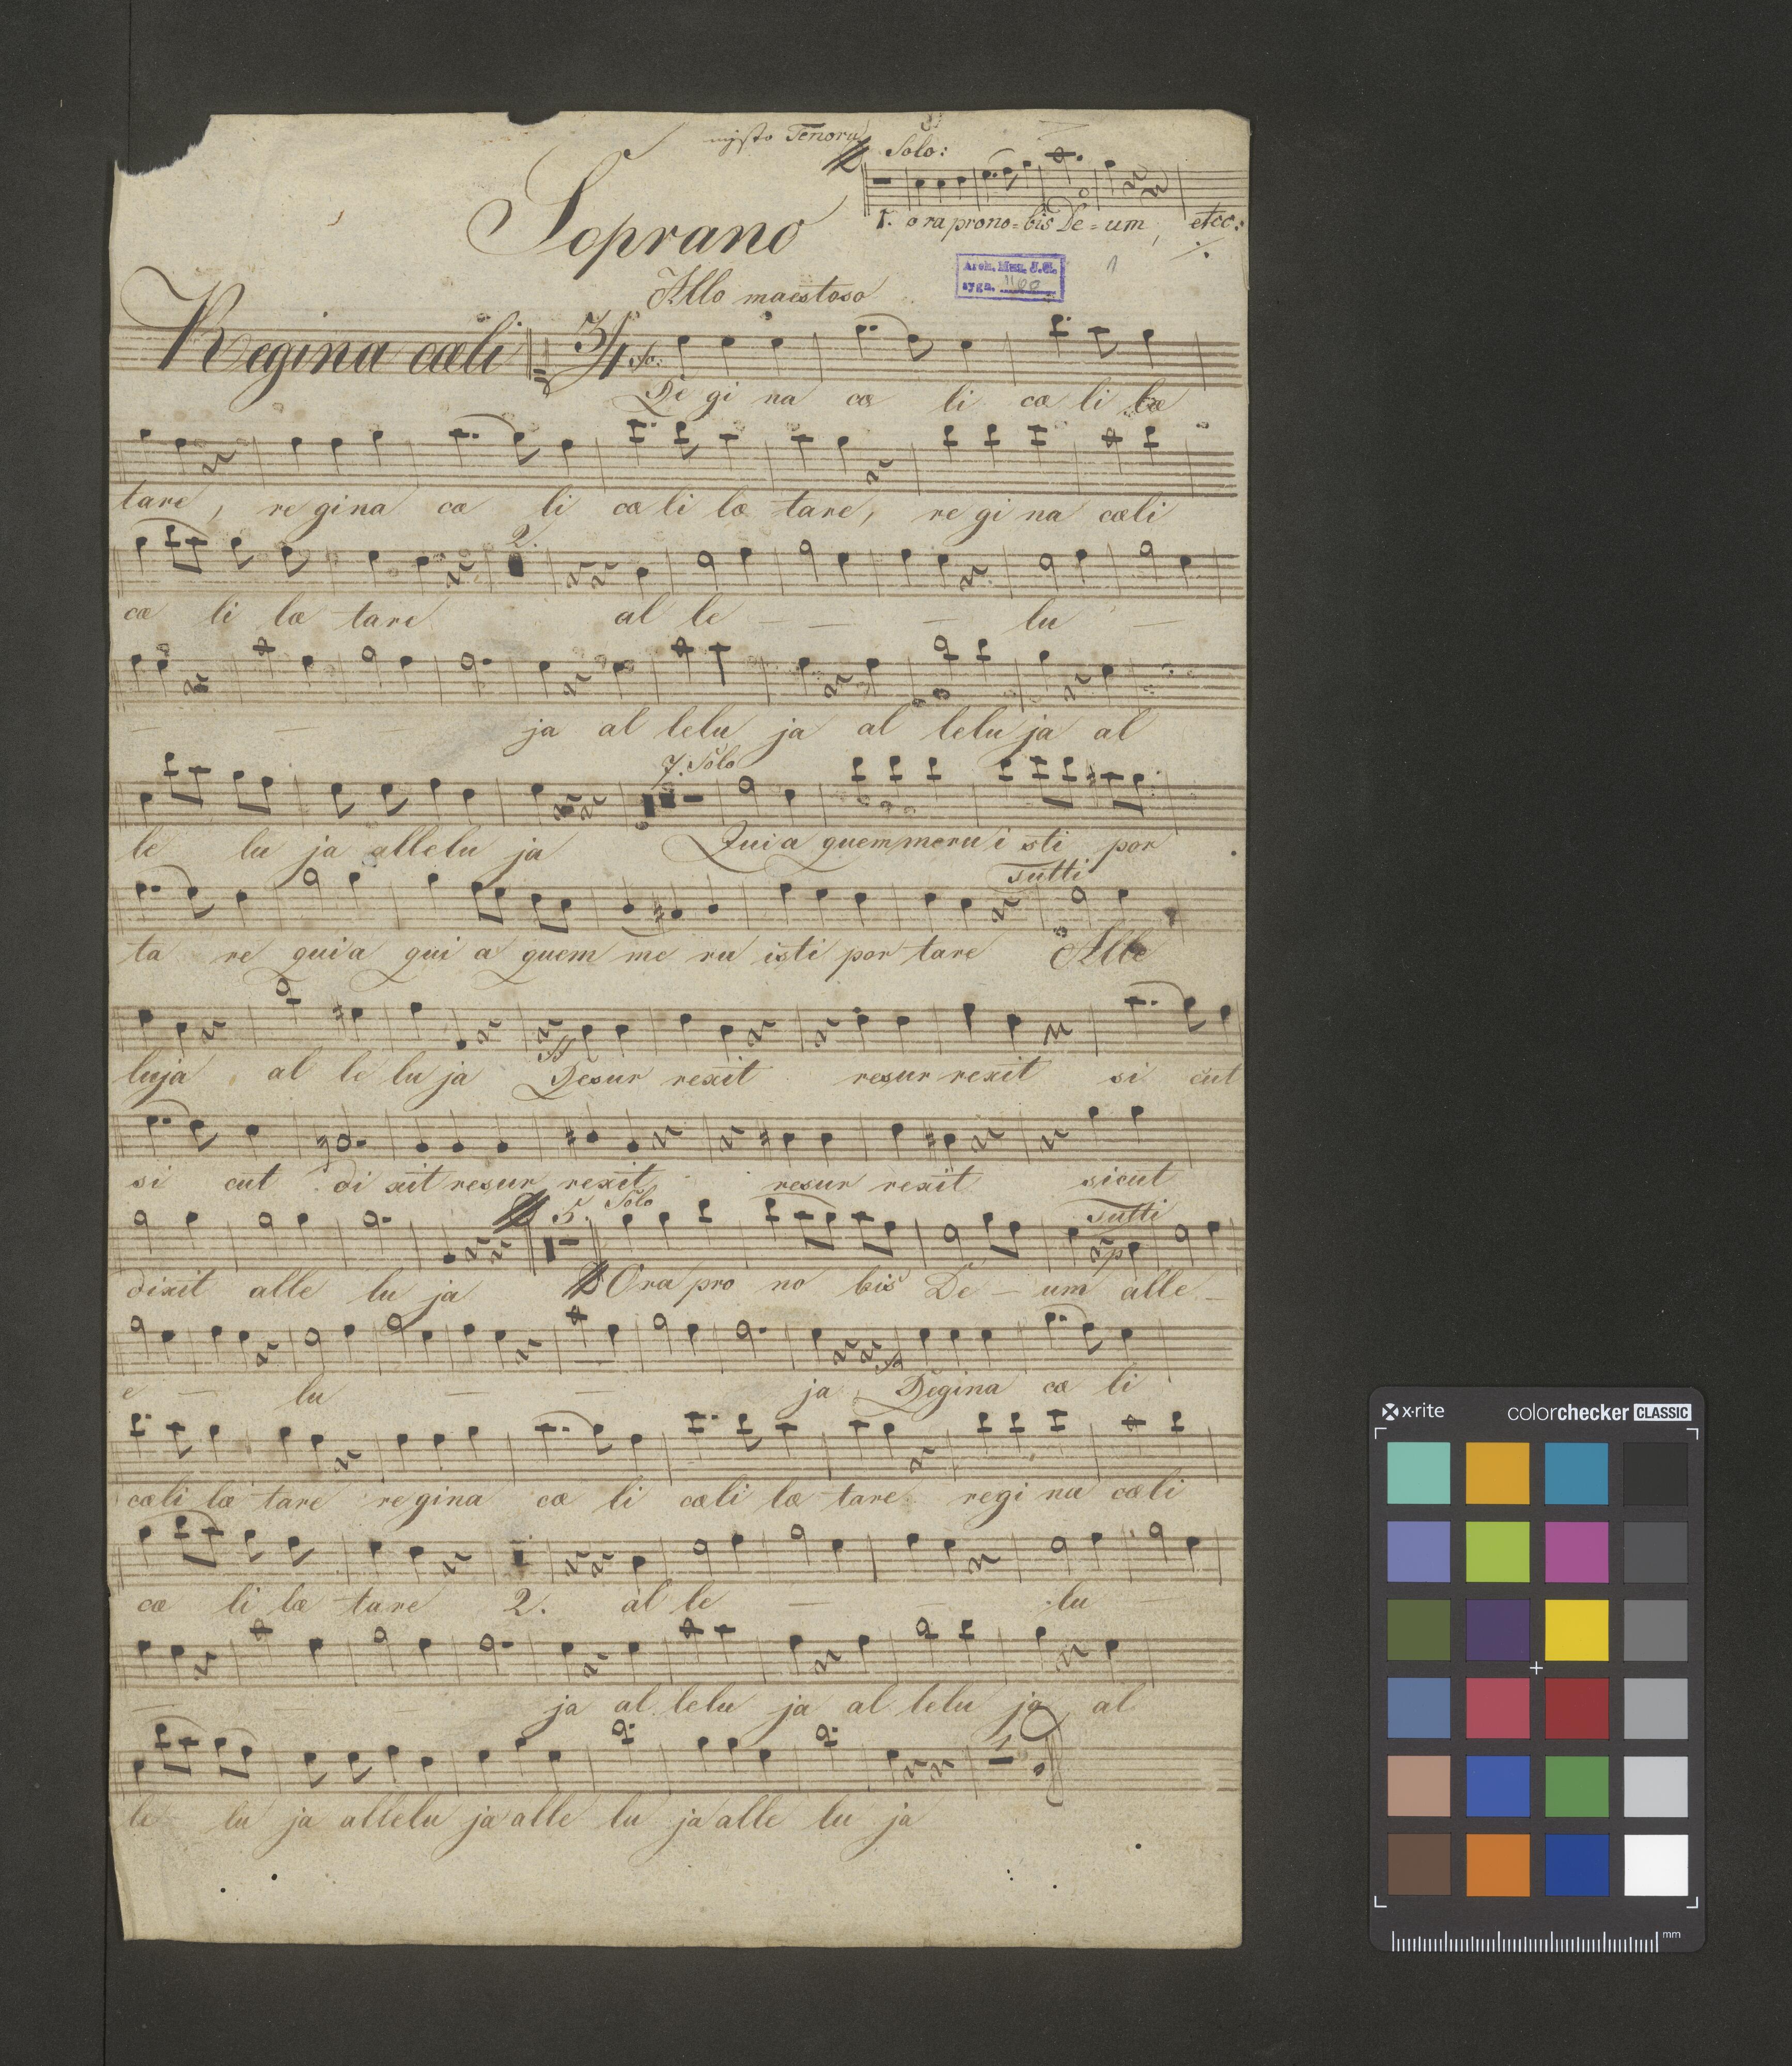 Tenoru
Solo:
1. ora pro no=bis De=um, etcc:
Soprano
Arch. Muz. J.G.
sygn. 1
Allo maestoso
Regina cœli 3/4
Regina cœ li cœ li lœ
tare, regina cœ li cœli lœ tare, regina cœli
2.
cœ li lœ tare al le — — — lu —
— — — ja al lelu ja al lelu ja al
7. Solo
le lu ja allelu ja Quia quem meru i sti por
Tutti
ta re quia qui a quem me ru isti por tare Alle
luja al le lu ja Resur rexit resur rexit si cut
si cut di xit resur rexit resur rexit sicut
5. Solo Tutti
p
dixit alle lu ja Ora pro no bis De — um alle —
e — lu — — ja Regina cœ li
cœli lœ tare regina cœ li cœli lœ tare regi na cœli
cœ li lœ tare 2. al le — — lu —
— — — ja al lelu ja al lelu ja al
1
le lu ja allelu ja alle lu ja alle lu ja
x·rite colorchecker CLASSIC
mm